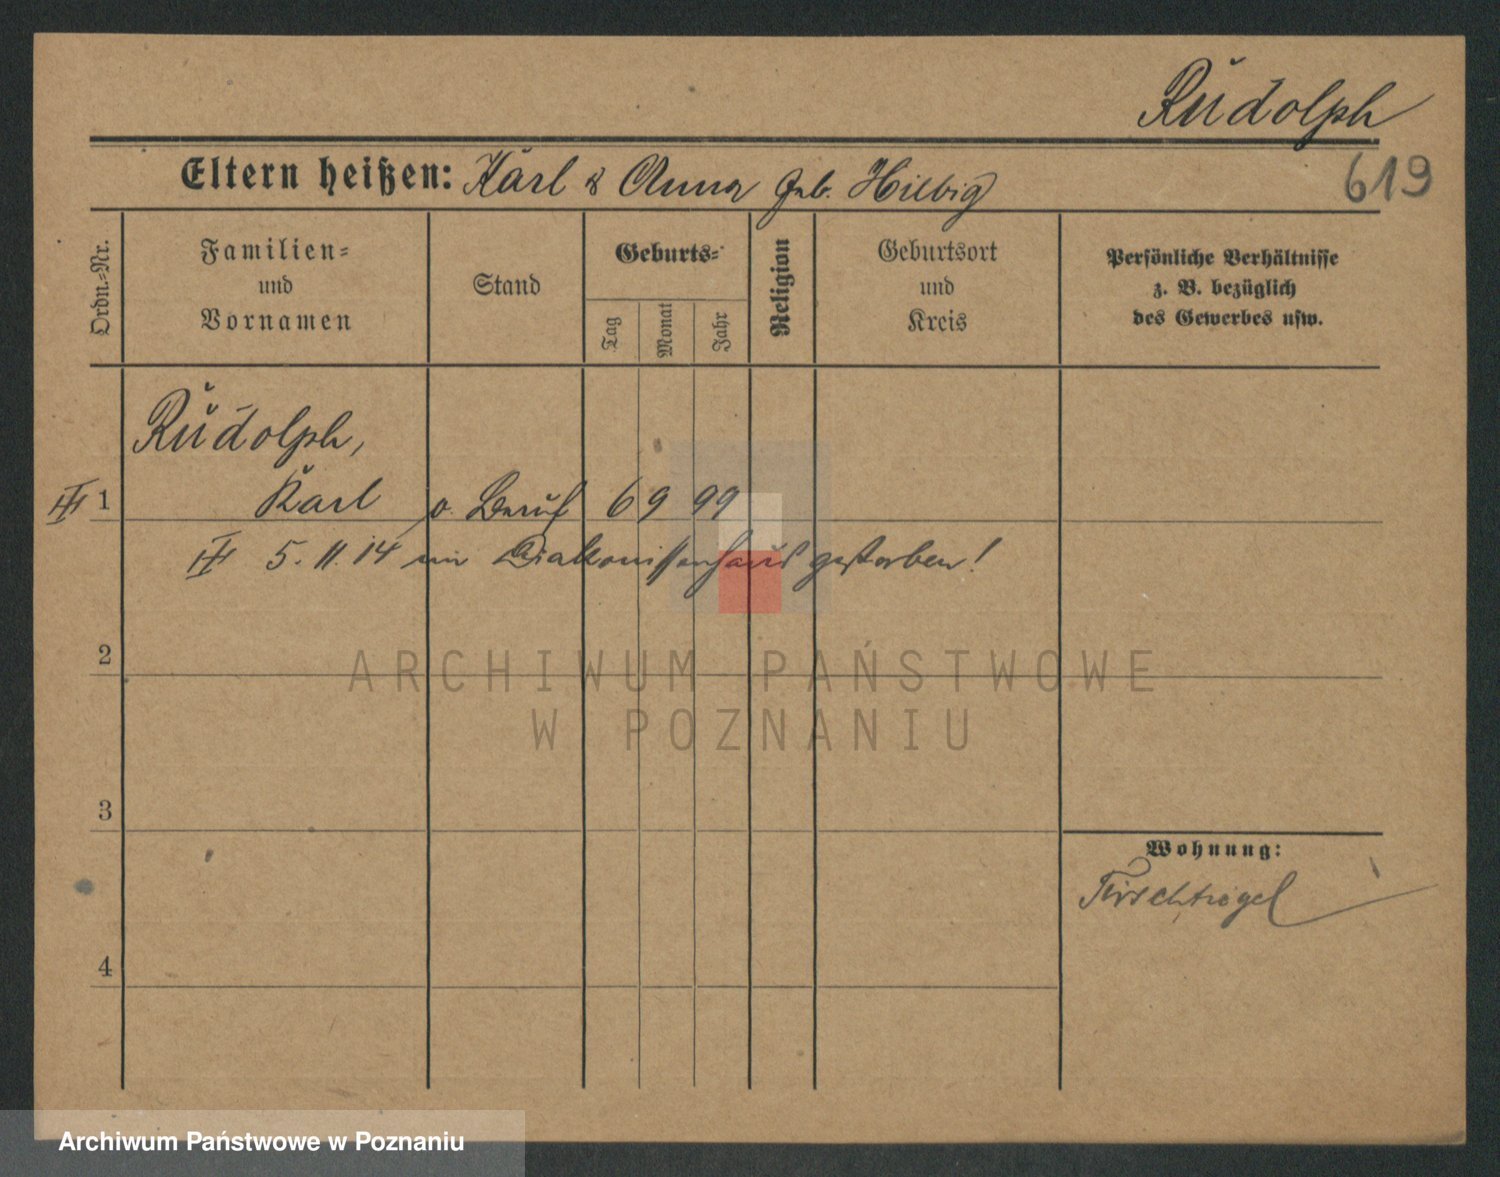 Rudolph
619
Eltern heißen: Karl & Anna geb. Hilbig
Ordn.=Nr.
Familien=
und
Vornamen
Stand
Geburts=
Tag
Monat
Jahr
Religion
Geburtsort
und
Kreis
Persönliche Verhältnisse
z. B. bezüglich
des Gewerbes usw.
Rudolph,
1 Karl o. Beruf 6 9 99
5. 11. 14 im Diakonissenhaus gestorben!
2
ARCHIWUM PAŃSTWOWE
W POZNANIU
3
Wohnung:
Tirschtiegel
4
Archiwum Państwowe w Poznaniu